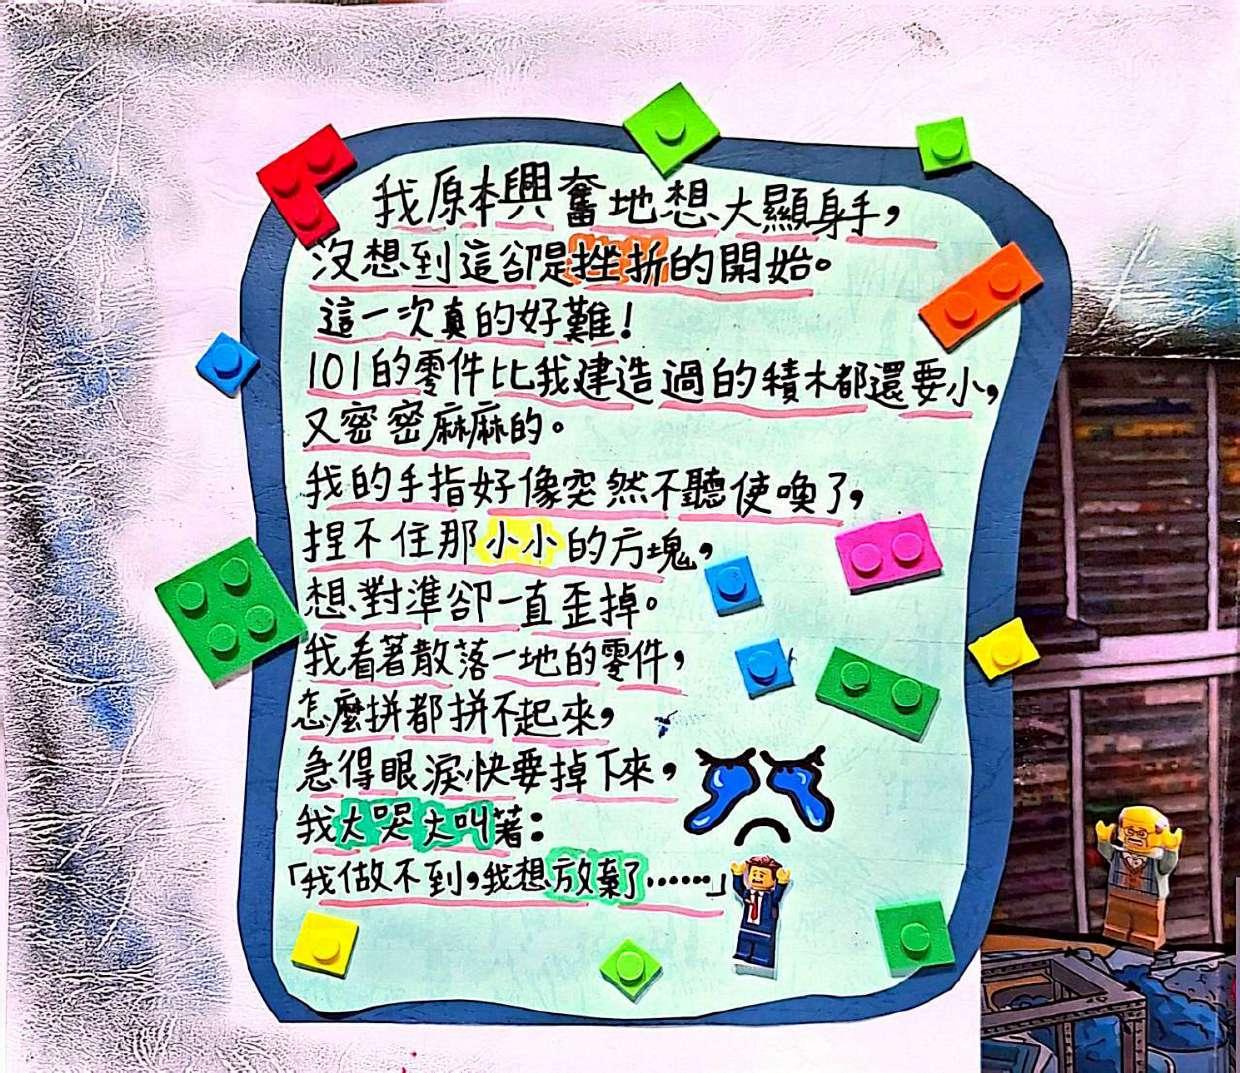 我原本興奮地想大顯身手，
沒想到這卻是挫折的開始。
這一次真的好難！
101的零件比我建造過的積木都還要小，
又密密麻麻的。
我的手指好像突然不聽使喚了，
捏不住那小小的方塊，
想對準卻一直歪掉。
我看著散落一地的零件，
怎麼拼都拼不起來，
急得眼淚快要掉下來，
我大哭大叫著：
「我做不到，我想放棄了……」